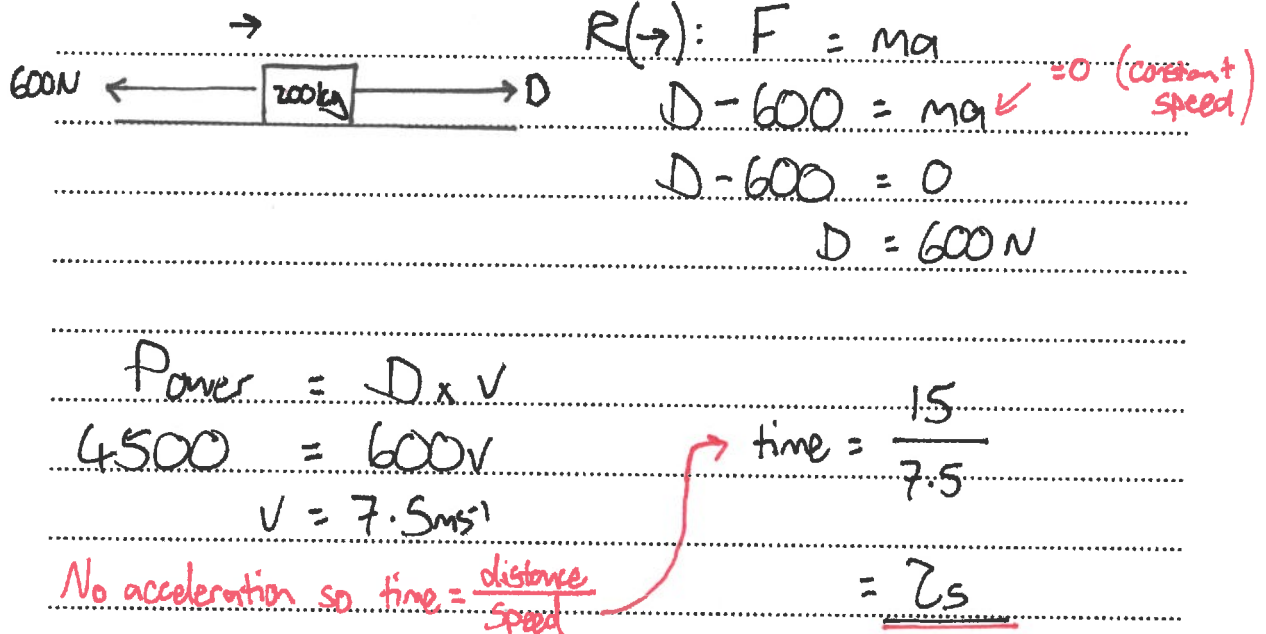 →
R(→): F = ma
600N 200kg D
D - 600 = ma = 0 (constant speed)
D - 600 = 0
D = 600N
Power = D x V
4500 = 600v
V = 7.5ms⁻¹
No acceleration so time = distance / speed
time = 15 / 7.5
= 2s